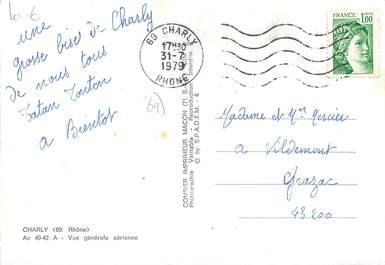 10 €
une
grosse bise de Charly
de nous tous
Tatan Tonton
a Bientot
69 CHARLY
17H30
31-7
1979
RHONE
FRANCE
1,00
69)
COMBIER IMPRIMEUR MACON
Photographie Véritable - Reproduction Interdite
© by S.P.A.D.E.M. - 6
Madame et Mr Mercier
a Vildemont
Grazac
43200
CHARLY (69. Rhône)
Ac 40-42 A - Vue générale aérienne